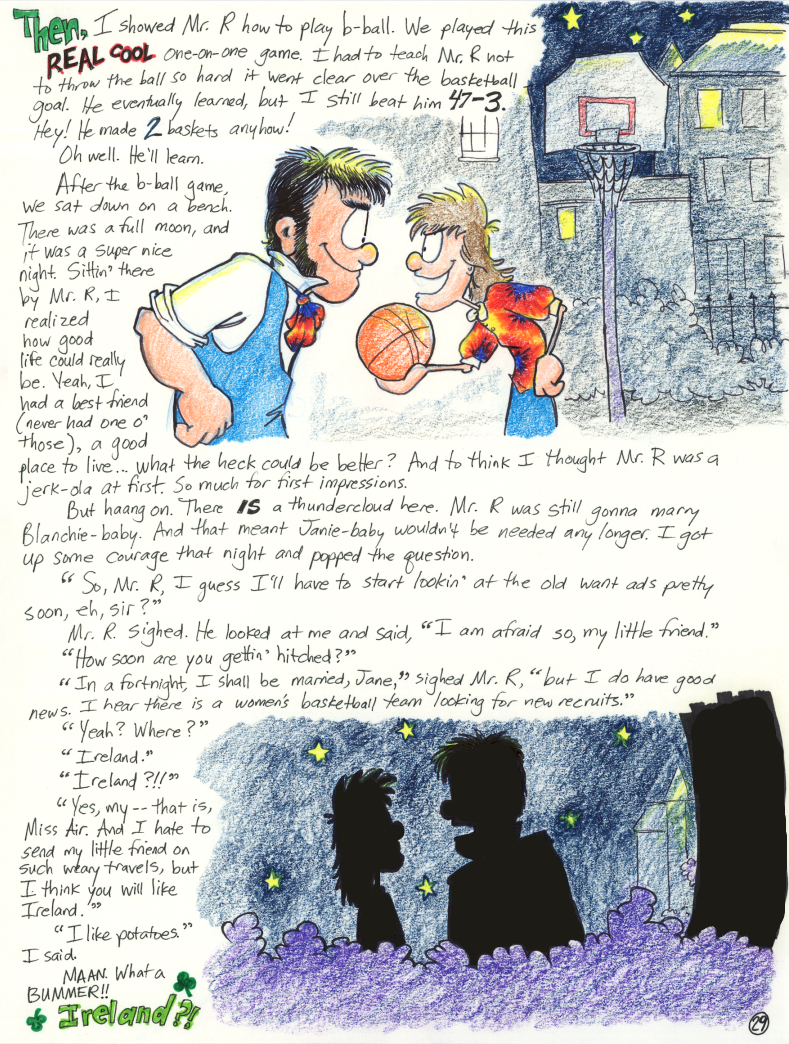 Then, I showed Mr. R how to play b-ball. We played this
REAL COOL one-on-one game. I had to teach Mr. R not
to throw the ball so hard it went clear over the basketball
goal. He eventually learned, but I still beat him 47-3.
Hey! He made 2 baskets anyhow!
Oh well. He'll learn.
After the b-ball game,
we sat down on a bench.
There was a full moon, and
it was a super nice
night. Sittin' there
by Mr. R, I
realized
how good
life could really
be. Yeah, I
had a best friend
(never had one o'
those), a good
place to live... what the heck could be better? And to think I thought Mr. R was a
jerk-ola at first. So much for first impressions.
But haang on. There IS a thundercloud here. Mr. R was still gonna marry
Blanchie-baby. And that meant Janie-baby wouldn't be needed any longer. I got
up some courage that night and popped the question.
"So, Mr. R, I guess I'll have to start lookin' at the old want ads pretty
soon, eh, sir?"
Mr. R. sighed. He looked at me and said, "I am afraid so, my little friend."
"How soon are you gettin' hitched?"
"In a fortnight, I shall be married, Jane," sighed Mr. R, "but I do have good
news. I hear there is a women's basketball team looking for new recruits."
"Yeah? Where?"
"Ireland."
"Ireland?!!"
"Yes, my -- that is,
Miss Air. And I hate to
send my little friend on
such weary travels, but
I think you will like
Ireland."
"I like potatoes."
I said.
MAAN. What a
BUMMER!!
Ireland?!
29